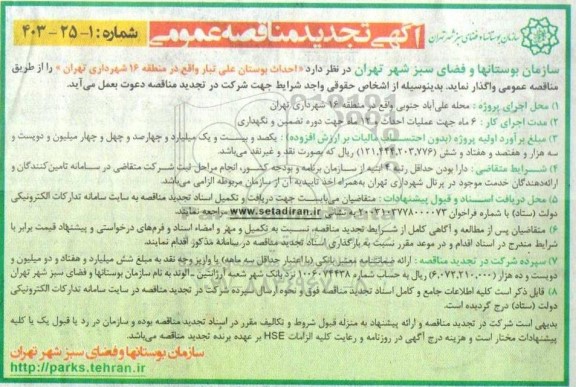 سازمان بوستانها و فضای سبز شهر تهران
آگهی تجدید مناقصه عمومی
شماره: ۱-۲۵-۴۰۳
سازمان بوستانها و فضای سبز شهر تهران در نظر دارد «احداث بوستان علی تبار واقع در منطقه ۱۶ شهرداری تهران» را از طریق
مناقصه عمومی واگذار نماید. بدینوسیله از اشخاص حقوقی واجد شرایط جهت شرکت در تجدید مناقصه دعوت بعمل می‌آید.
۱) محل اجرای پروژه : محله علی‌آباد جنوبی واقع در منطقه ۱۶ شهرداری تهران
۲) مدت اجرای کار : ۶ ماه جهت عملیات احداث و جهت دوره تضمین و نگهداری
۳) مبلغ برآورد اولیه پروژه (بدون احتساب مالیات بر ارزش افزوده) : یکصد و بیست و یک میلیارد و چهارصد و چهل و چهار میلیون و دویست و
سه هزار و هفتصد و هفتاد و شش (۱۲۱،۴۴۴،۲۰۳،۷۷۶) ریال که بصورت نقد و غیرنقد می‌باشد.
۴) شرایط متقاضی : دارا بودن حداقل رتبه ابنیه از سازمان برنامه و بودجه کشور، انجام مراحل ثبت شرکت متقاضی در سامانه تامین‌کنندگان و
ارائه‌دهندگان خدمت موجود در پرتال شهرداری تهران به‌همراه اخذ تاییدیه آن از سازمان مربوطه الزامی می‌باشد.
۵) محل دریافت اسناد و قبول پیشنهادات : متقاضیان می‌بایست جهت دریافت و تکمیل اسناد تجدید مناقصه به سایت سامانه تدارکات الکترونیکی
دولت (ستاد) با شماره فراخوان ۲۰۰۳۰۰۳۷۷۸۰۰۰۰۷۳ به نشانی www.setadiran.ir مراجعه نمایند.
۶) متقاضیان پس از مطالعه و آگاهی کامل از شرایط تجدید مناقصه، نسبت به تکمیل و مهر و امضاء اسناد و فرم‌های درخواستی و پیشنهاد قیمت برابر با
شرایط مندرج در اسناد اقدام و در موعد مقرر نسبت به بارگذاری اسناد تجدید مناقصه در سامانه مذکور اقدام نمایند.
۷) سپرده شرکت در تجدید مناقصه : ارائه ضمانتنامه معتبر بانکی (با اعتبار حداقل سه ماهه) یا واریز وجه نقد به مبلغ شش میلیارد و هفتاد و دو میلیون و
دویست و ده هزار (۶،۰۷۲،۲۱۰،۰۰۰) ریال به حساب شماره ۱۰۰۶۰۷۴۴۳۸ نزد بانک شهر شعبه آرژانتین ـ الوند به نام سازمان بوستانها و فضای سبز شهر تهران
۸) قابل ذکر است کلیه اطلاعات جامع و کامل اسناد تجدید مناقصه فوق و نحوه ارسال سپرده شرکت در تجدید مناقصه در سایت سامانه تدارکات الکترونیکی
دولت (ستاد) درج گردیده است.
بدیهی است شرکت در تجدید مناقصه و ارائه پیشنهاد به منزله قبول شروط و تکالیف مقرر در اسناد تجدید مناقصه بوده و سازمان در رد یا قبول یک یا کلیه
پیشنهادات مختار است و هزینه درج آگهی در روزنامه و رعایت کلیه الزامات HSE بر عهده برنده تجدید مناقصه می‌باشد.
سازمان بوستانها و فضای سبز شهر تهران
http://parks.tehran.ir